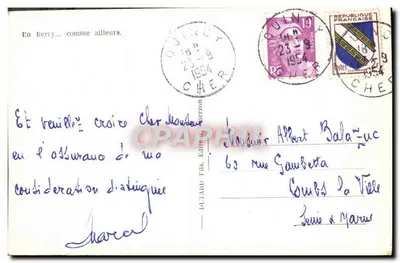 En Berry... comme ailleurs.
QUINCY
23-9
1954
CHER
QUINCY
23-9
1954
CHER
REPUBLIQUE
FRANÇAISE
Et veuillez croire Cher Monsieur
en l'assurance de ma
considération distinguée
Marcel
Monsieur Albert Balazuc
63 rue Gambetta
Combs la Ville
Seine et Marne